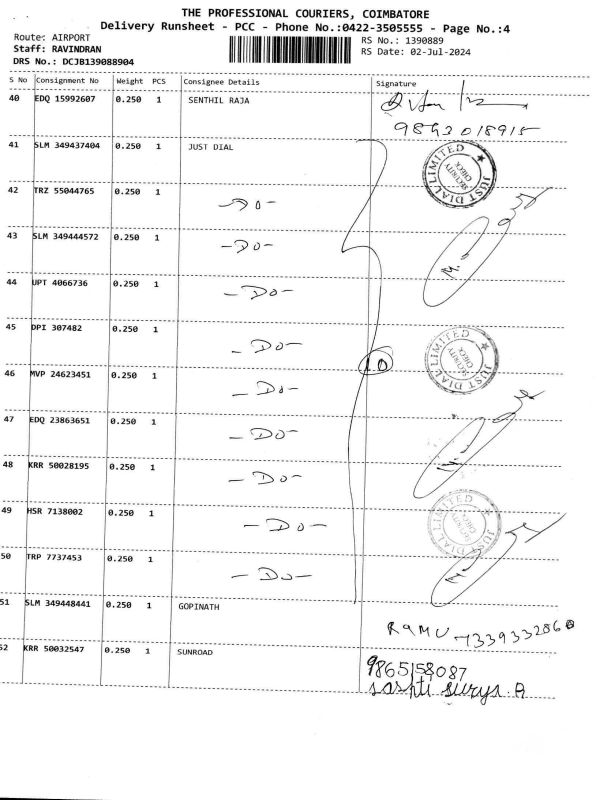 THE PROFESSIONAL COURIERS, COIMBATORE
Delivery Runsheet - PCC - Phone No.:0422-3505555 - Page No.:4
Route: AIRPORT
RS No.: 1390889
Staff: RAVINDRAN
RS Date: 02-Jul-2024
DRS No.: DCJB139088904
S No Consignment No Weight PCS Consignee Details Signature
40 EDQ 15992607 0.250 1 SENTHIL RAJA
9842018915
41 SLM 349437404 0.250 1 JUST DIAL
JUST DIAL LIMITED
SECURITY CHECK
42 TRZ 55044765 0.250 1 -Do-
43 SLM 349444572 0.250 1 -Do-
44 UPT 4066736 0.250 1 -Do-
45 DPI 307482 0.250 1 -Do-
10
JUST DIAL LIMITED
SECURITY CHECK
46 MVP 24623451 0.250 1 -Do-
47 EDQ 23863651 0.250 1 -Do-
48 KRR 50028195 0.250 1 -Do-
49 HSR 7138002 0.250 1 -Do-
JUST DIAL LIMITED
SECURITY CHECK
50 TRP 7737453 0.250 1 -Do-
51 SLM 349448441 0.250 1 GOPINATH
RAMU 7339332860
52 KRR 50032547 0.250 1 SUNROAD
9865158087
surya A